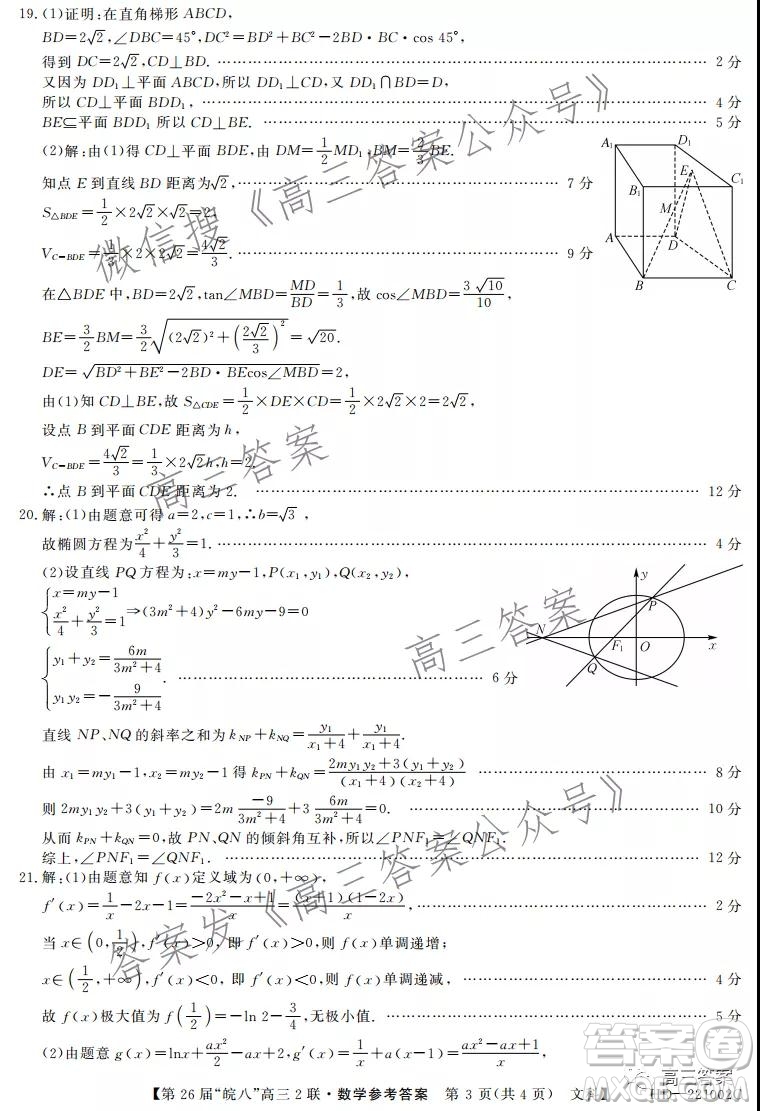 19. (1)证明:在直角梯形 ABCD,
BD=2√2,∠DBC=45°,DC²=BD²+BC²-2BD·BC·cos 45°,
得到 DC=2√2,CD⊥BD. …… 2 分
又因为 DD₁⊥平面 ABCD,所以 DD₁⊥CD,又 DD₁∩BD=D,
所以 CD⊥平面 BDD₁, …… 4 分
BE⊆平面 BDD₁ 所以 CD⊥BE. …… 5 分
(2)解:由(1)得 CD⊥平面 BDE,由 DM=1/2 MD₁,BM=2/3 BE.
知点 E 到直线 BD 距离为√2, …… 7 分
S△BDE=1/2×2√2×√2=2,
V_{C-BDE}=1/3×2×2√2=4√2/3. …… 9 分
在△BDE 中,BD=2√2,tan∠MBD=MD/BD=1/3,故 cos∠MBD=3√10/10,
BE=3/2 BM=3/2 √((2√2)²+(2√2/3)²)=√20.
DE=√(BD²+BE²-2BD·BEcos∠MBD)=2,
由(1)知 CD⊥BE,故 S△CDE=1/2×DE×CD=1/2×2√2×2=2√2,
设点 B 到平面 CDE 距离为 h,
V_{C-BDE}=4√2/3=1/3×2√2h,h=2.
∴点 B 到平面 CDE 距离为 2. …… 12 分
A₁ D₁ E C₁ B₁ M A D B C
20. 解:(1)由题意可得 a=2,c=1,∴b=√3 ,
故椭圆方程为x²/4+y²/3=1. …… 4 分
(2)设直线 PQ 方程为:x=my-1,P(x₁,y₁),Q(x₂,y₂),
{x=my-1
x²/4+y²/3=1 ⇒(3m²+4)y²-6my-9=0
{y₁+y₂=6m/(3m²+4)
y₁y₂=-9/(3m²+4) . …… 6 分
y P N F₁ O x Q
直线 NP、NQ 的斜率之和为 k_{NP}+k_{NQ}=y₁/(x₁+4)+y₁/(x₁+4).
由 x₁=my₁-1,x₂=my₂-1 得 k_{PN}+k_{QN}=(2my₁y₂+3(y₁+y₂))/((x₁+4)(x₂+4)) …… 8 分
则 2my₁y₂+3(y₁+y₂)=2m -9/(3m²+4)+3 6m/(3m²+4)=0. …… 10 分
从而 k_{PN}+k_{QN}=0,故 PN、QN 的倾斜角互补,所以∠PNF₁=∠QNF₁.
综上,∠PNF₁=∠QNF₁. …… 12 分
21. 解:(1)由题意知 f(x)定义域为(0,+∞),
f′(x)=1/x-2x-1=(-2x²-x+1)/x=(x+1)(1-2x)/x, …… 2 分
当 x∈(0,1/2),f′(x)>0, 即 f′(x)>0,则 f(x)单调递增;
x∈(1/2,+∞),f′(x)<0, 即 f′(x)<0,则 f(x)单调递减, …… 4 分
故 f(x)极大值为 f(1/2)=-ln 2-3/4,无极小值. …… 5 分
(2)由题意 g(x)=lnx+ax²/2-ax+2,g′(x)=1/x+a(x-1)=(ax²-ax+1)/x,
【第 26 届“皖八”高三 2 联·数学参考答案 第 3 页(共 4 页) 文科】 HD-221002C
微信搜《高三答案公众号》
高三答案
高三答案
答案发《高三答案公众号》
高三答案
答案圈